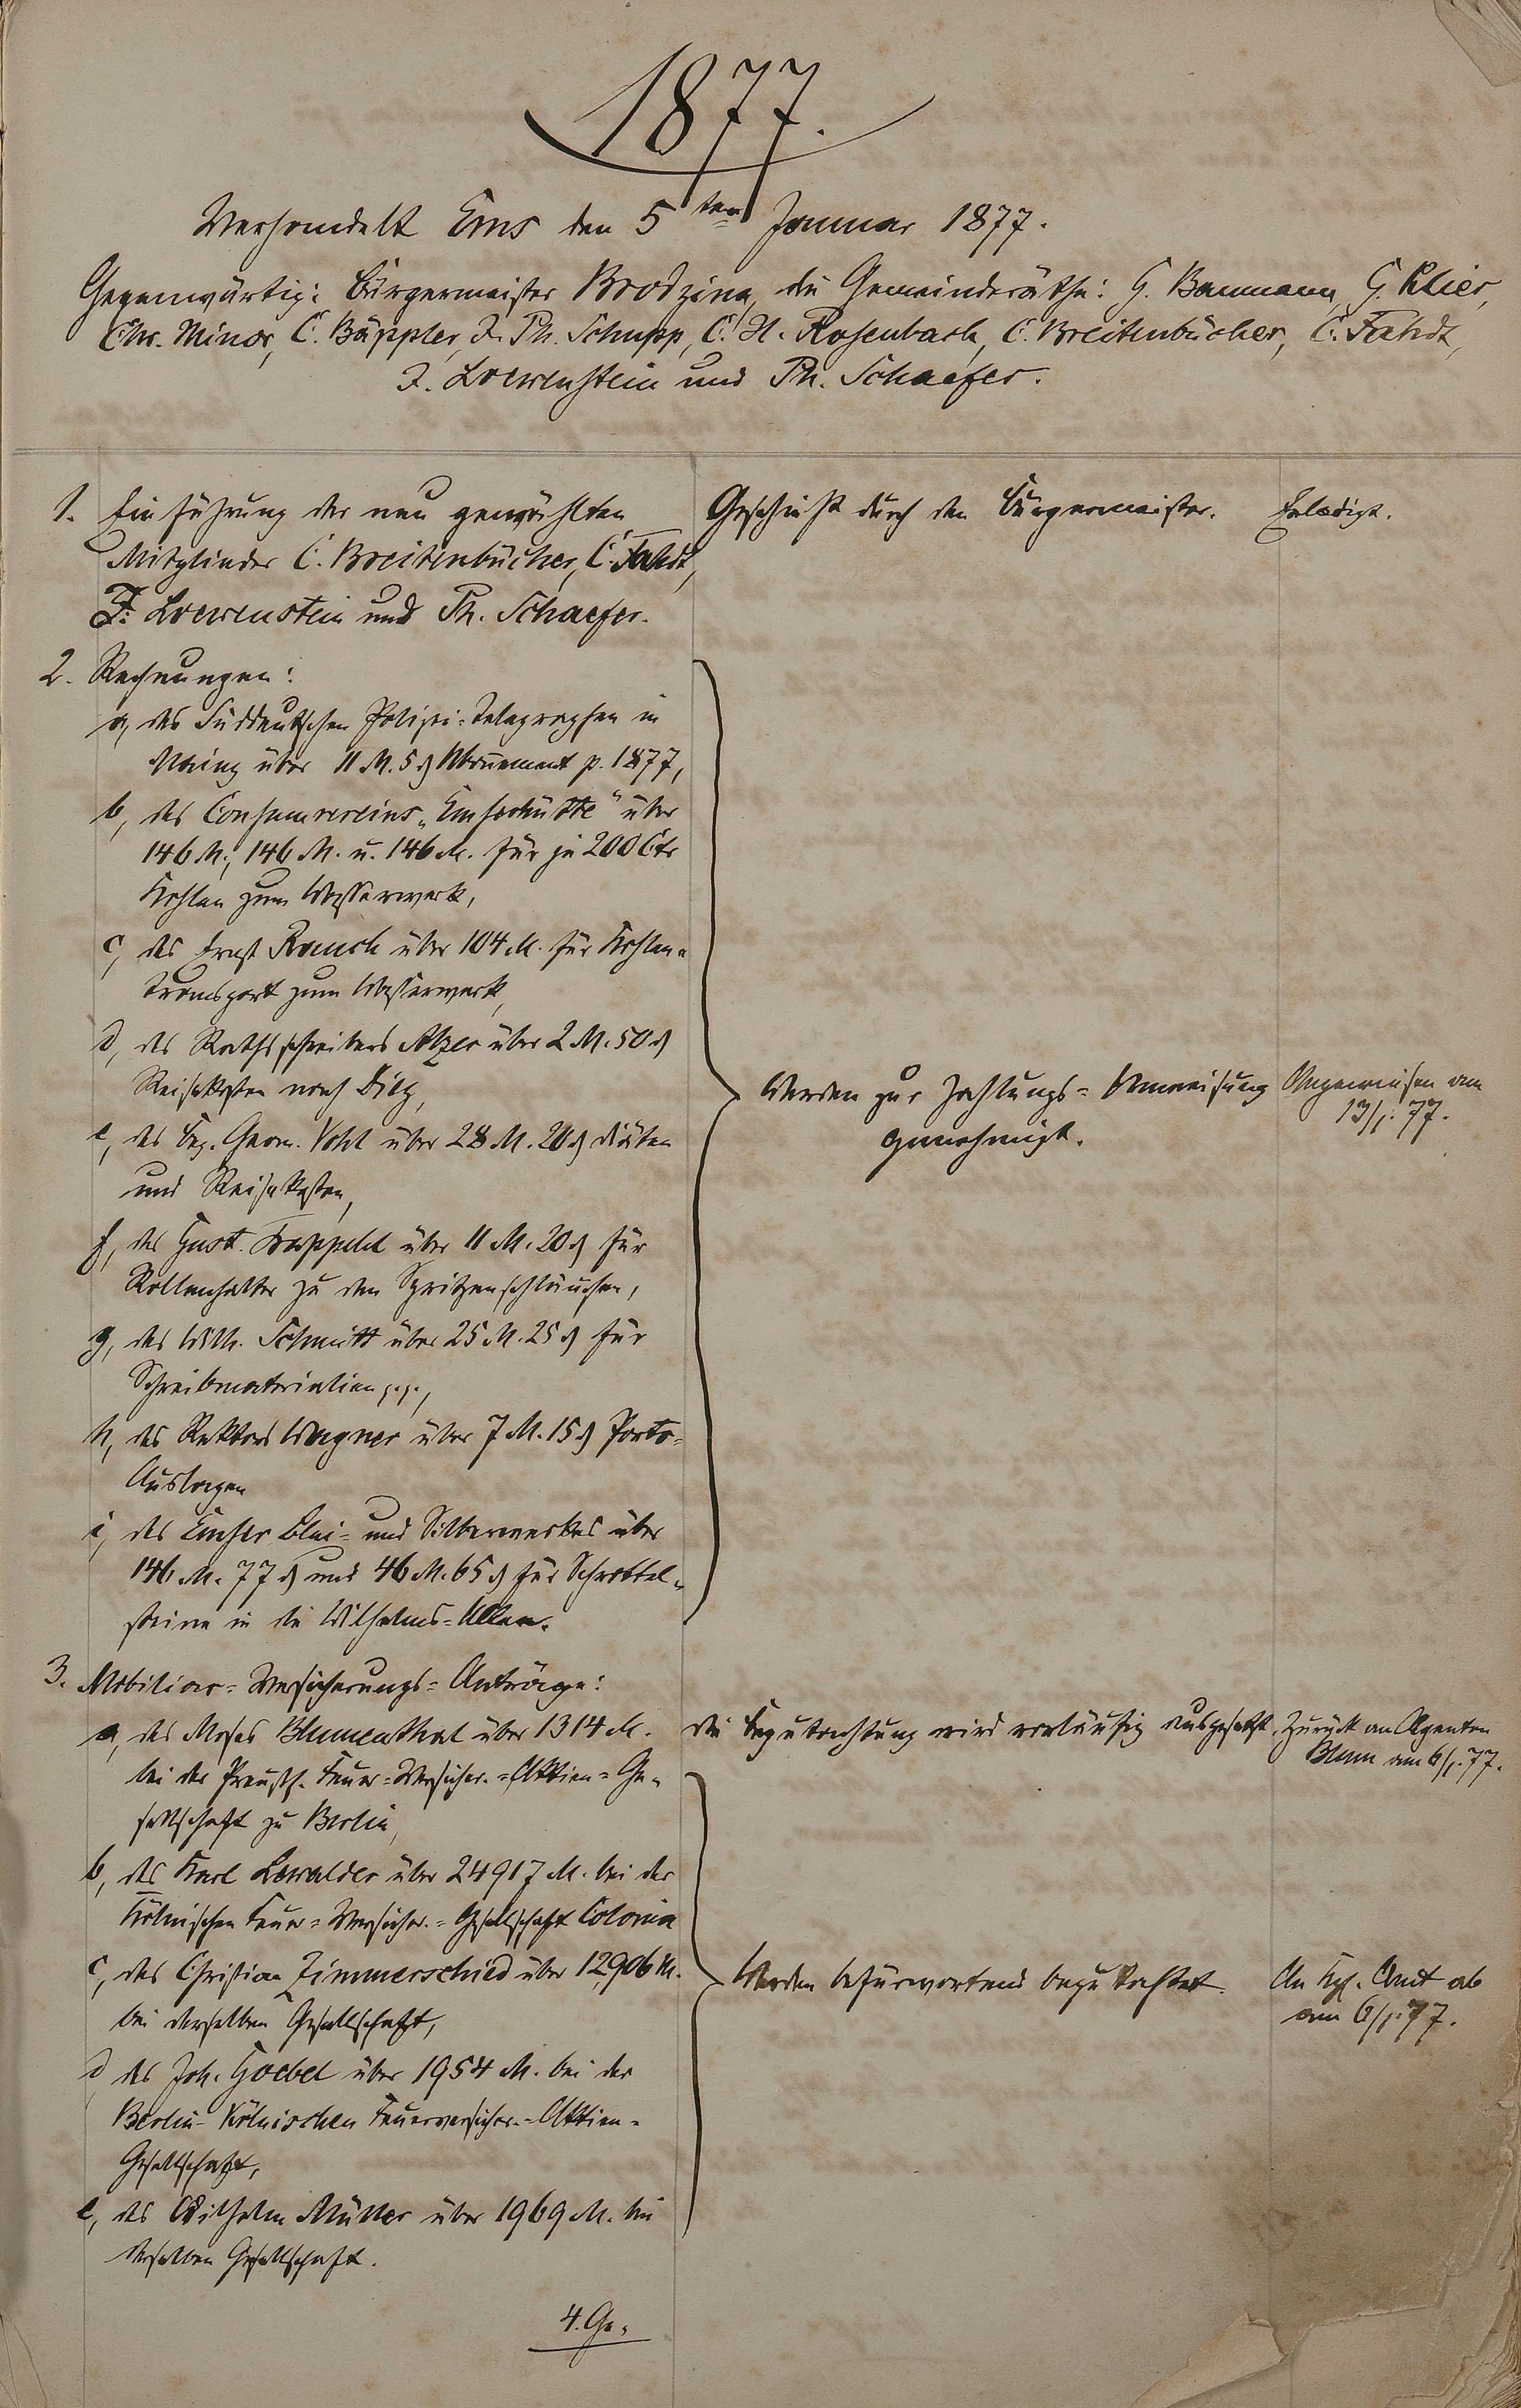 1877.
Verhandelt Ems den 5ten Januar 1877.
Gegenwärtig: Bürgermeister Brodzina, die Gemeinderäthe: G. Baumann, G. Klier,
Chr. Minor, C. Bäppler, J. Ph. Schupp, C. H. Rosenbach, C. Breitenbücher, C. Fahdt,
J. Loewenstein und Ph. Schaefer.
1. Einführung der neu gewählten
Mitglieder C. Breitenbücher, C. Fahdt,
J. Loewenstein und Ph. Schaefer.
Geschieht durch den Bürgermeister.
Erledigt.
2. Rechnungen:
a, des Süddeutschen Polizei-Telegraphen in
Mainz über 11 M. 5 ₰ Abonnement p. 1877,
b, des Consumvereins „Emserhütte" über
146 M., 146 M. u. 146 M. für je 200 Ctr
Kohlen zum Wasserwerk,
c, des Ernst Rauch über 104 M. für Kohlen-
transport zum Wasserwerk,
d, des Rathsschreibers Alzer über 2 M. 50 ₰
Reisekosten nach Diez,
e, des Bez. Geom. Vohl über 28 M. 20 ₰ Diäten
und Reisekosten,
f, des Gust. Trappehl über 11 M. 20 ₰ für
Rollenhalter zu den Spritzenschläuchen,
g, des Wilh. Schmitt über 25 M. 25 ₰ für
Schreibmaterialien p.p.,
h, des Rektors Wagner über 7 M. 15 ₰ Porto-
Auslagen
i, des Emser Blei- und Silberwerkes über
146 M. 77 ₰ und 46 M. 65 ₰ für Schrottel-
steine in die Wilhelms-Allee.
Werden zur Zahlungs-Anweisung
genehmigt.
Angewiesen am
13/1. 77.
3. Mobiliar-Versicherungs-Anträge:
a, des Moses Blumenthal über 1314 M.
bei der Preuß. Feuer-Versicher.-Aktien-Ge-
sellschaft zu Berlin,
Die Begutachtung wird vorläufig ausgesetzt.
Zurück an Agenten
Blum am 6/1. 77.
b, des Karl Lewalder über 24917 M. bei der
Kölnischen Feuer-Versicher.-Gesellschaft Colonia
c, des Christian Zimmerschied über 12,906 M.
bei derselben Gesellschaft,
d, des Joh. Goebel über 1954 M. bei der
Berlin-Kölnischen Feuerversicher.-Aktien-
Gesellschaft,
e, des Wilhelm Müller über 1969 M. bei
derselben Gesellschaft.
Werden befürwortend begutachtet.
An Kgl. Amt ab
am 6/1. 77.
4. Ge-